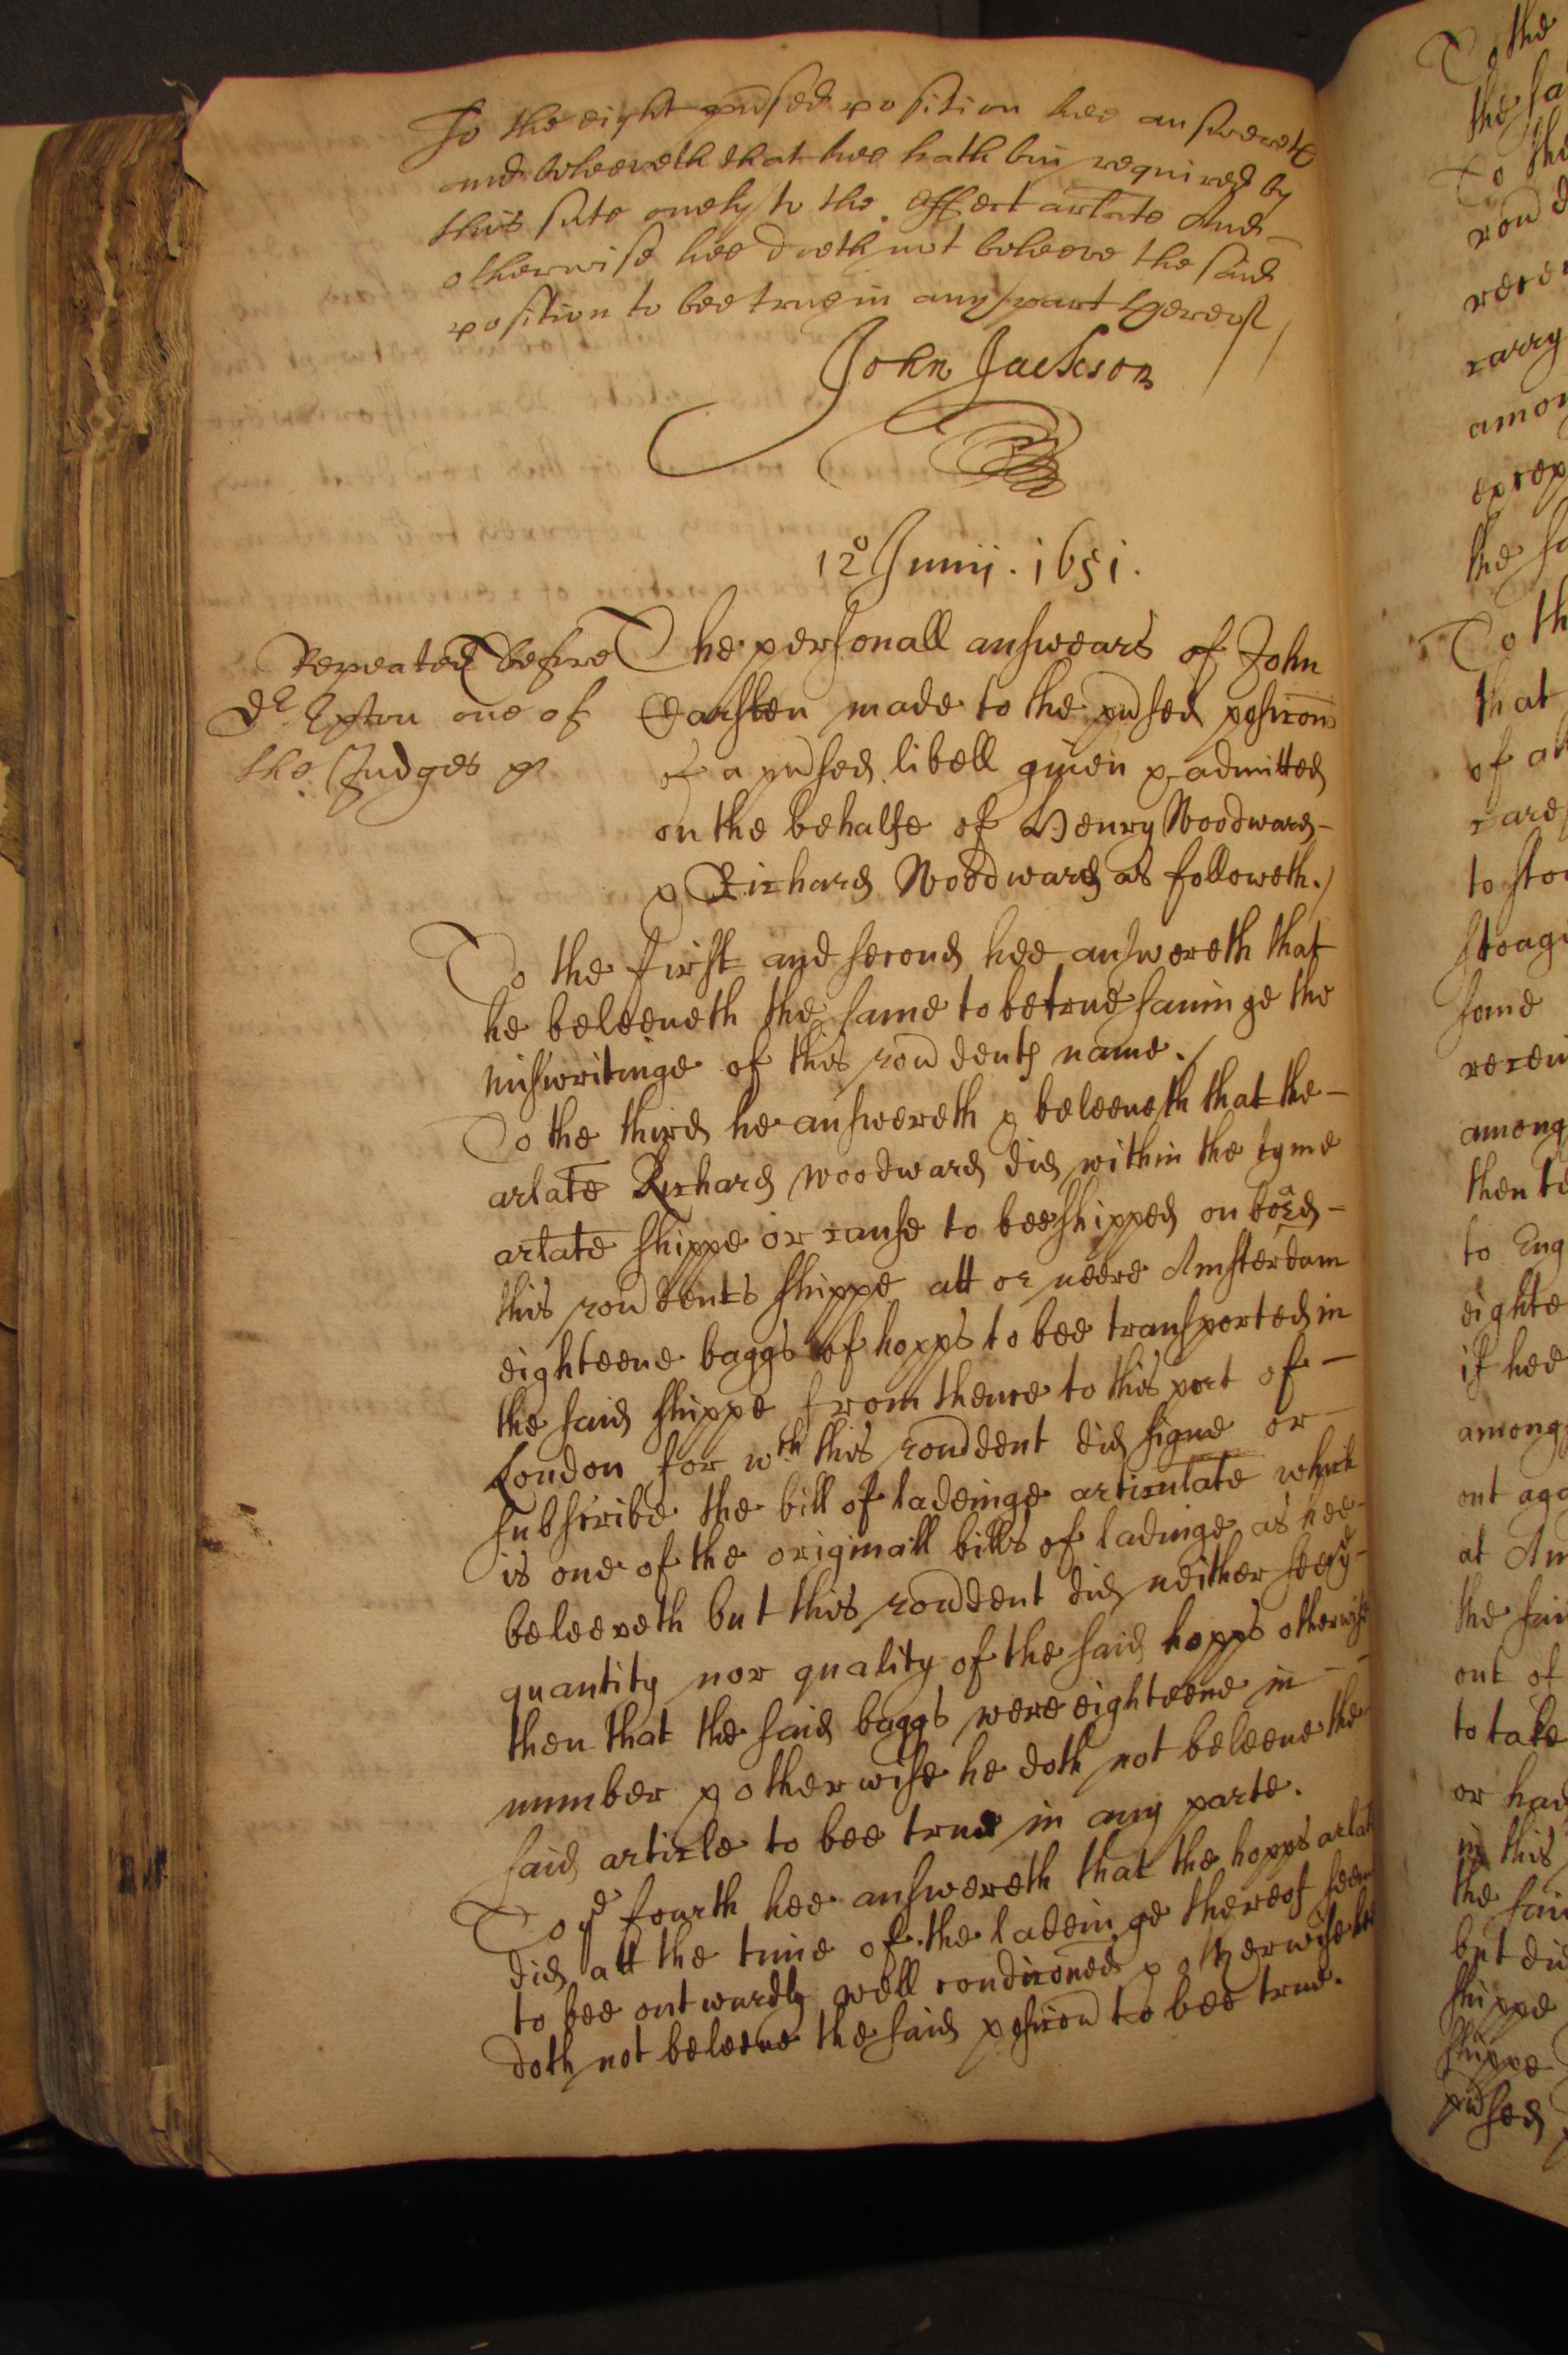 To the eight p~nsed position hee answereth
and beleeveth that hee hath bin required by
this sute onely to the effect arlate And
otherwise hee doeth not beleeve the said
position to bee true in any part thereof
John Jackson
12º Junij. 1651.
Repeated before
Dr. Exton one of
the Judges &c
The personall answears of John
Carsten made to the p~nsed posicons
of a p~nsed libell given & admitted
on the behalfe of Henry Woodward-
& Richard Woodward as followeth./
To the first and second hee answereth that
he beleeueth the same to be true sauinge the
miswritinge of this rondents name./
To the third he answereth & beleeueth that the-
arlate Richard Woodward did within the tyme
arlate shippe or cause to bee shipped on board-
this rondents shippe att or neere Amsterdam
eighteene baggs of hopps to bee transported in
the said shippe from thence to this port of-
London for wch this rondent did signe or-
subscribe the bill of ladeinge articulate which
is one of the originall bills of ladinge as hee-
beleeveth but this rondent did neither see ye-
quantity nor quality of the said hopps otherwise
then that the said baggs were eighteene in--
number & otherwise he doth not beleeue the
said article to bee true in any parte.
To ye fourth hee answereth that the hopps arlate
did att the time of the ladeinge thereof seem
to bee outwardly well condiconed & otherwise hee
doth not beleeue the said posicon to bee true.
To the
the sa
To the
rond
recei
carry
among
excep
the sa
To th
that
of all
care
to sto
stoage
some
receiu
among
then
to Eng
eighte
if hee
among
out aga
at Am
the said
out of
to take
or had
in this
the said
but did
shippe
shippe
p~nsed